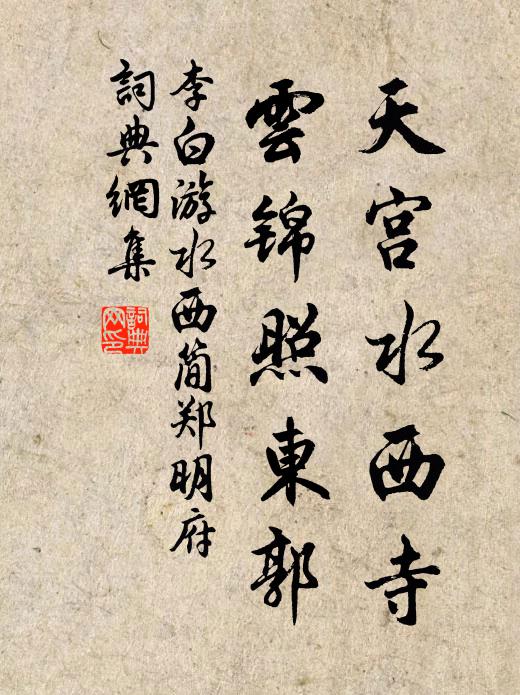 天宫水西寺
雲锦照東郭
李白游水西简郑明府
詞典網集
詞典網印